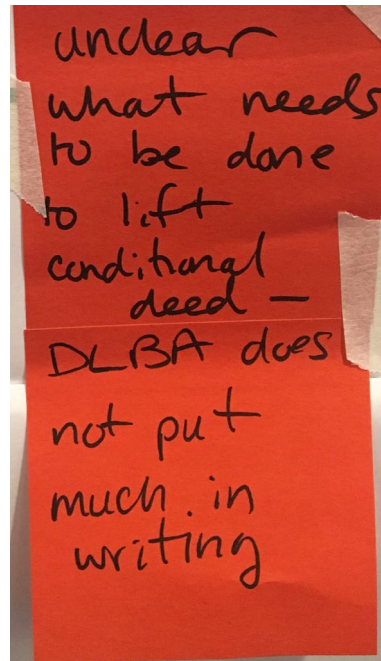 unclear
what needs
to be done
to lift
conditional
deed —
DLBA does
not put
much in
writing